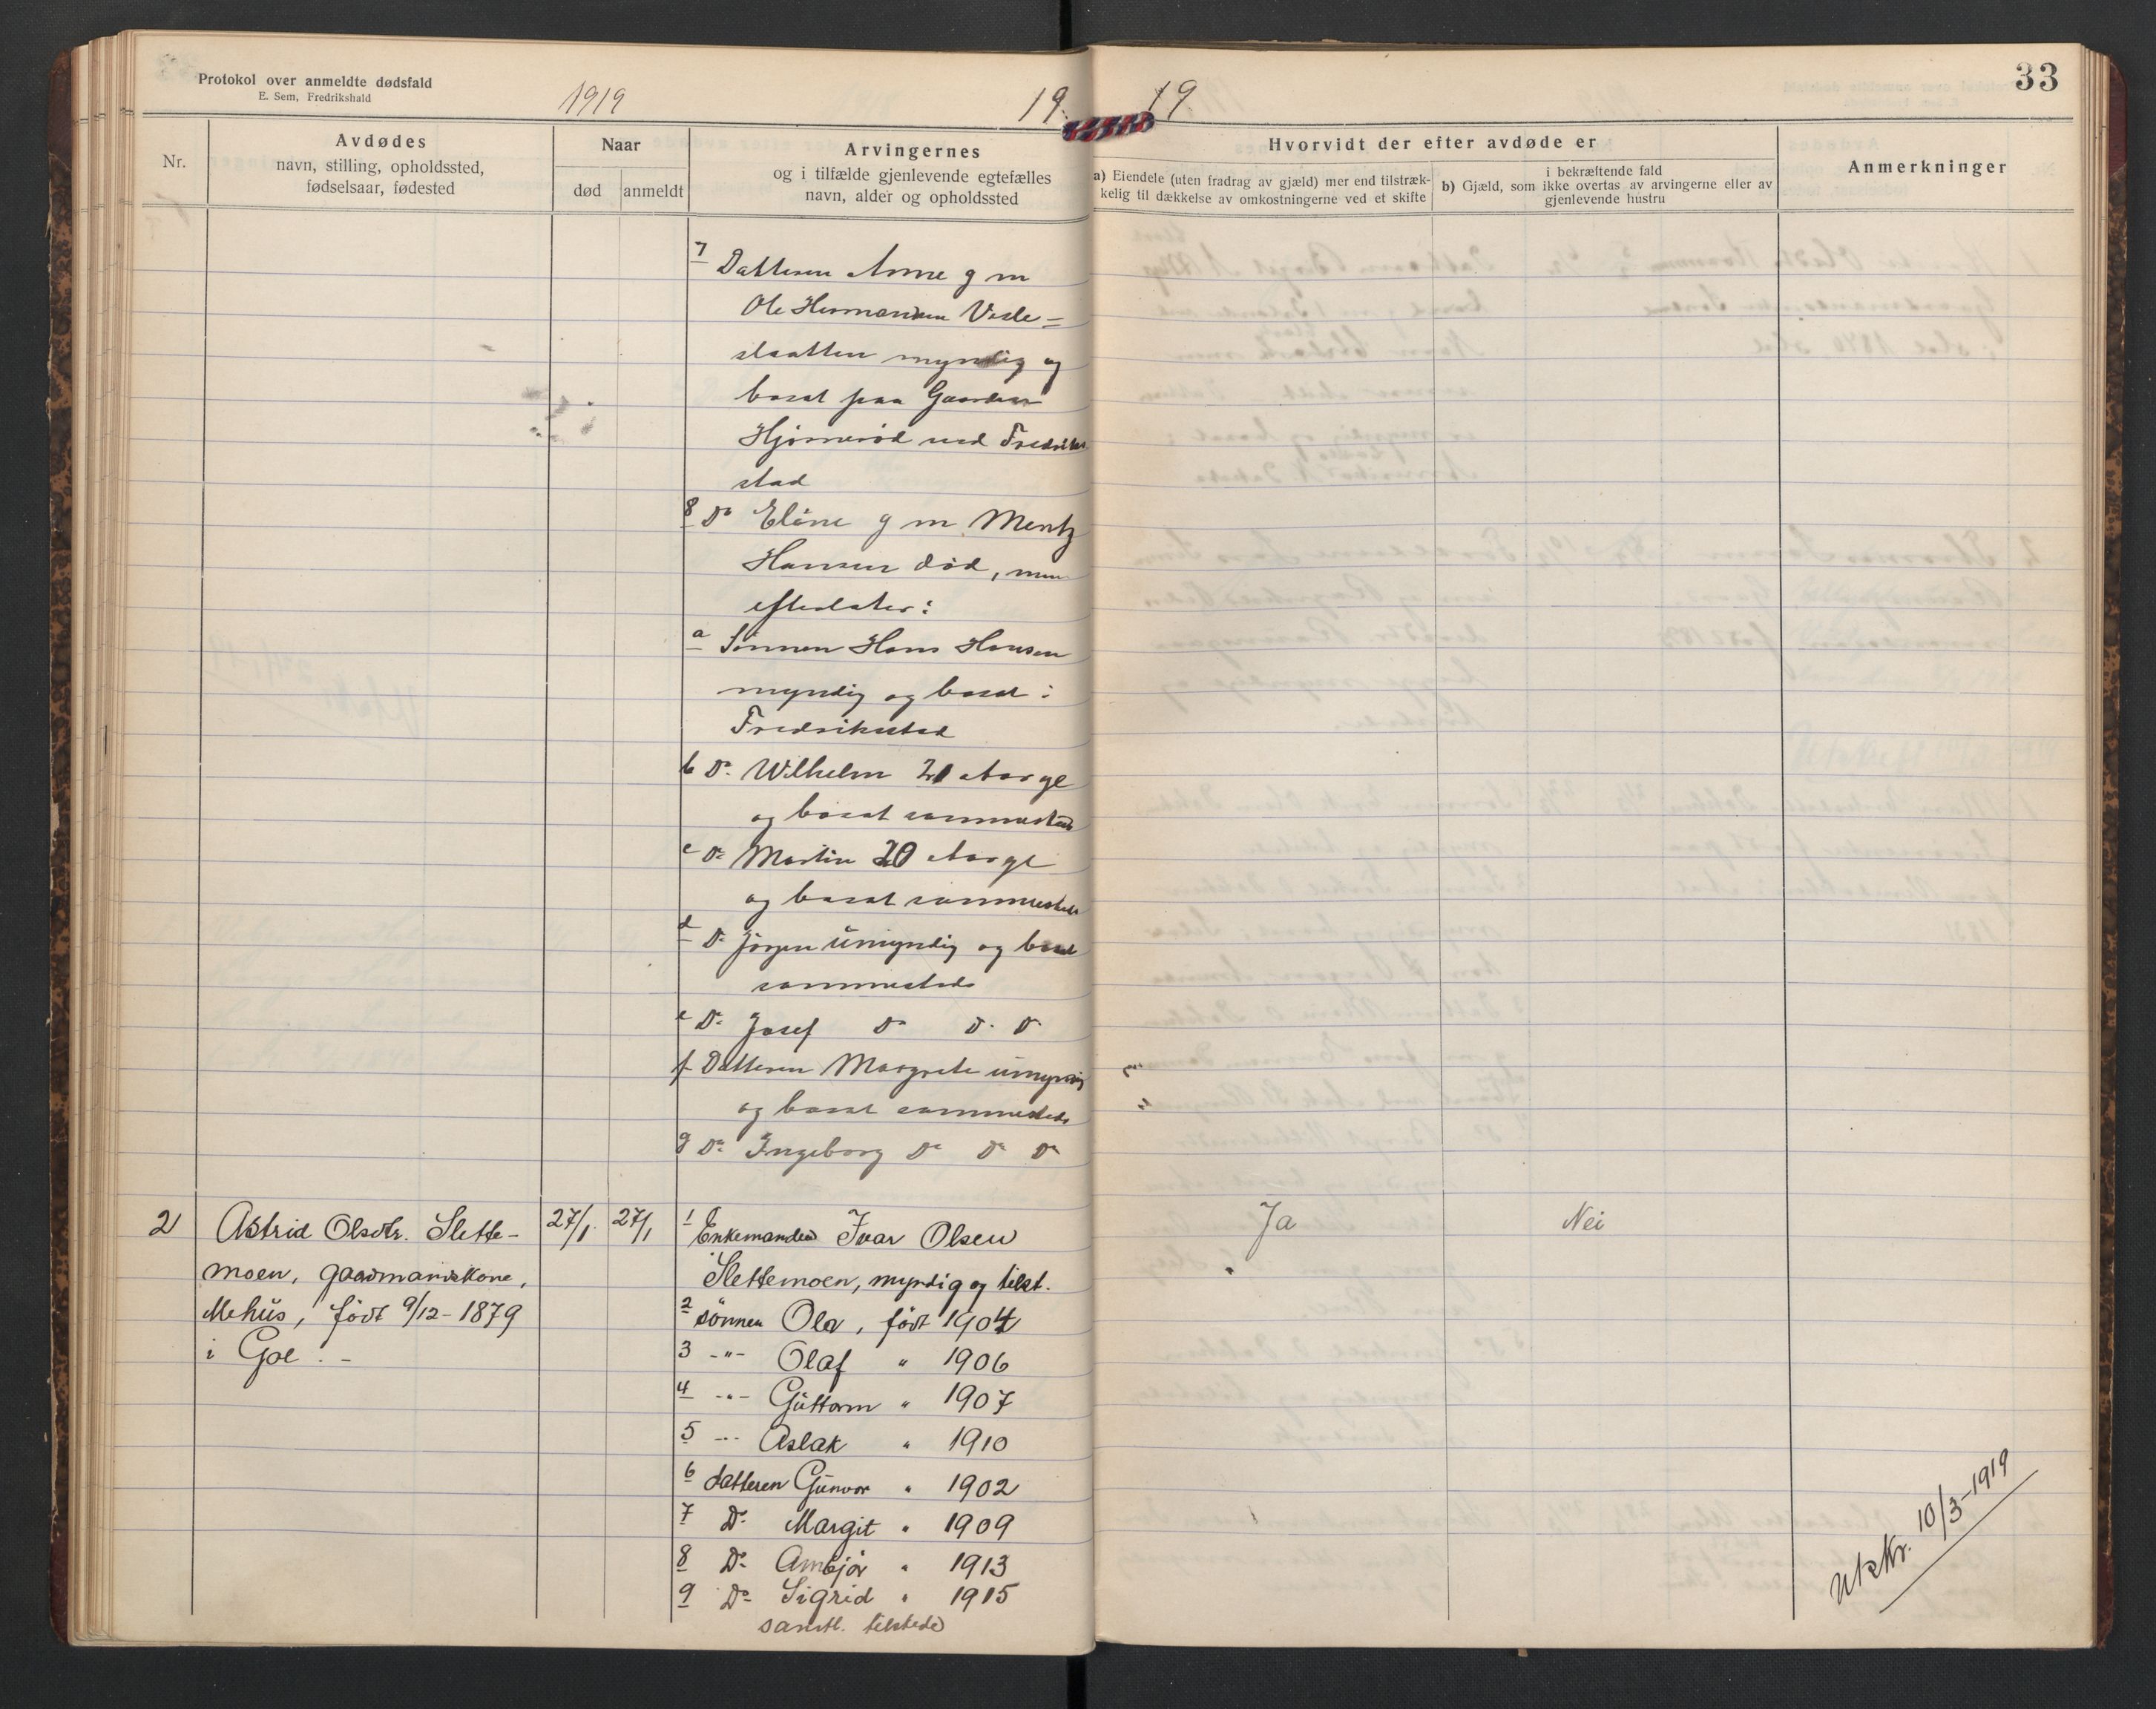 Protokol over anmeldte dødsfald
E. Sem, Fredrikshald
1919
19
19
33
Nr.
Avdødes
navn, stilling, opholdssted,
fødselsaar, fødested
Naar
død
anmeldt
Arvingernes
og i tilfælde gjenlevende egtefælles
navn, alder og opholdssted
Hvorvidt der efter avdøde er
a) Eiendele (uten fradrag av gjæld) mer end tilstræk-
kelig til dækkelse av omkostningerne ved et skifte
i bekræftende fald
b) Gjæld, som ikke overtas av arvingerne eller av
gjenlevende hustru
Anmerkninger
7 Datteren Anne g m
Ole Hermansen Vesle-
slaatten myndig og
bosat paa Gaarden
ved Fredrik-
stad
8 Do Eline g m Mentz
Hansen død, men
efterlater:
a Sønnen Hans Hansen
myndig og bosat i
Fredrikstad
b Do Wilhelm 21 Aar gl
og bosat sammesteds
c Do Martin 20 Aar gl
og bosat sammesteds
d Do Jørgen umyndig og bosat
sammesteds
e Do Josef Do Do Do
f Datteren Margrete umyndig
og bosat sammesteds
g Do Ingeborg Do Do Do
2 Astrid Olsdtr. Slette-
moen, gaardmandskone,
Mehus, født 9/12-1879
i Gol. -
27/1.
27/1
1 Enkemanden Ivar Olsen
Slettemoen, myndig og tilst.
2 sønnen Ola, født 1904
3 -"- Olaf " 1906
4 -"- Guttorm " 1907
5 -"- Aslak " 1910
6 datteren Gunvor " 1902
7 Do Margit " 1909
8 Do Ambjør " 1913
9 Do Sigrid " 1915
samtl. tilstede
Ja
Nei
Utskr. 10/3-1919